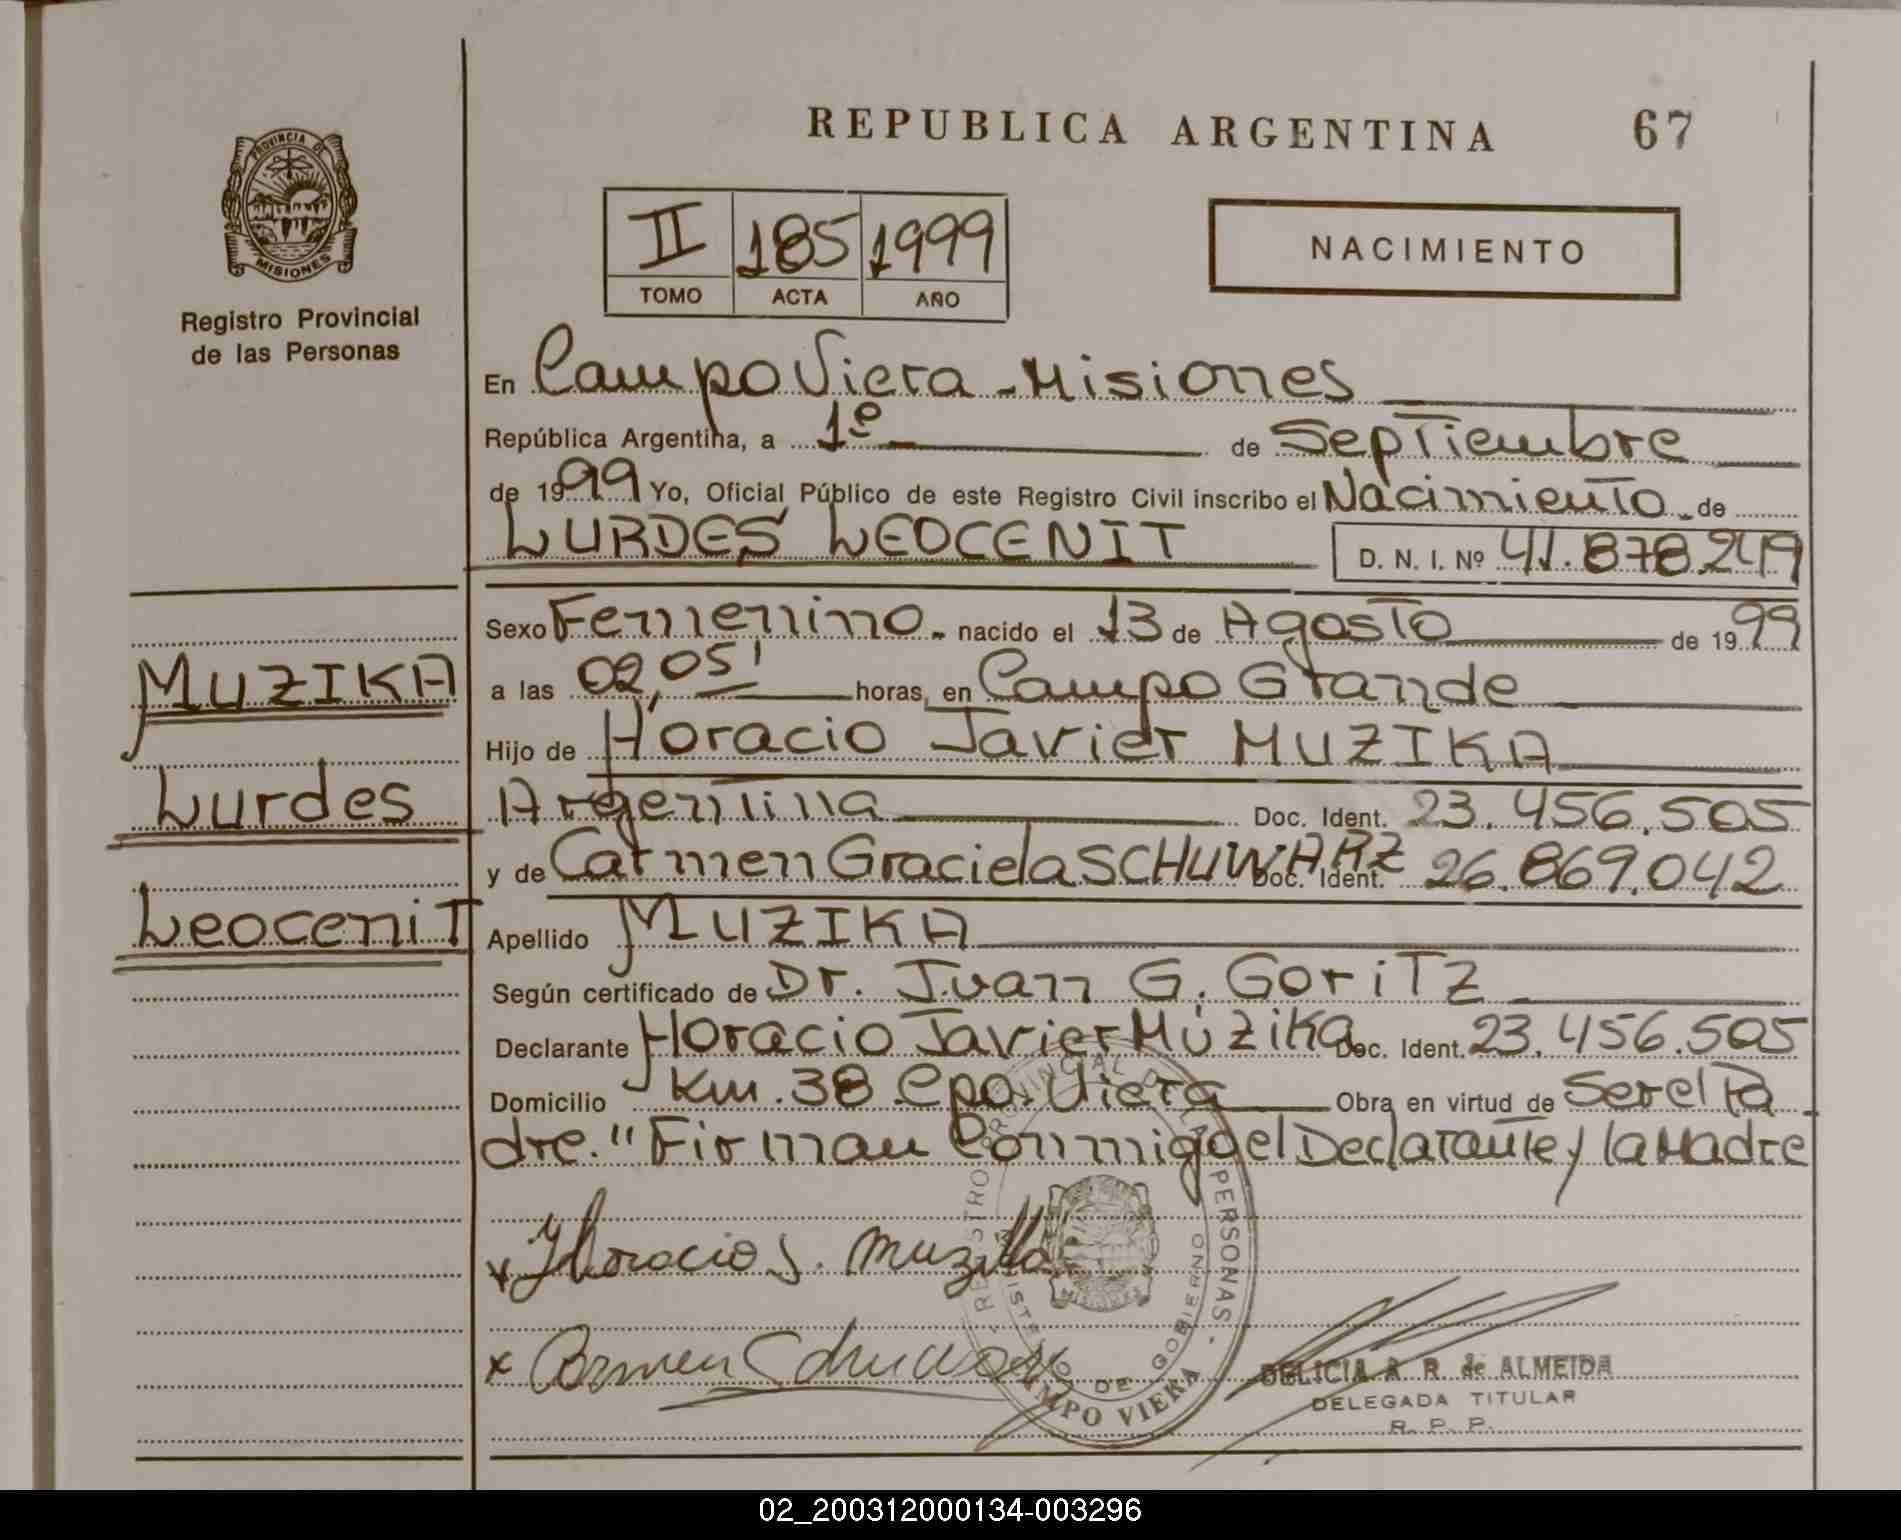 REPUBLICA ARGENTINA 67
PROVINCIA DE
MISIONES
Registro Provincial
de las Personas
II 185 1999
TOMO ACTA AÑO
NACIMIENTO
En Campo Viera - Misiones
República Argentina, a 1º de Septiembre
de 1999 Yo, Oficial Público de este Registro Civil inscribo el Nacimiento de
LURDES LEOCENIT D. N. I. Nº 41.878.249
Sexo Femenino - nacido el 13 de Agosto de 1999
a las 02,05' horas, en Campo Grande
Hijo de Horacio Javier MUZIKA
Argentina Doc. Ident. 23.456.505
y de Carmen Graciela SCHUWARZ Doc. Ident. 26.869.042
Apellido MUZIKA
Según certificado de Dr. Juan G. GoriTz
Declarante Horacio Javier Múzika Doc. Ident. 23.456.505
Domicilio Km. 38 Cpo. Viera Obra en virtud de Ser el Pa
dre." Firman Conmigo el Declarante y la Madre
MUZIKA
Lurdes
Leocenit
x Horacio J. Muzika
x Carmen
REGISTRO PROVINCIAL DE LAS PERSONAS
MINISTERIO DE GOBIERNO
CAMPO VIERA
DELICIA A R de ALMEIDA
DELEGADA TITULAR
R. P. P.
02_200312000134-003296